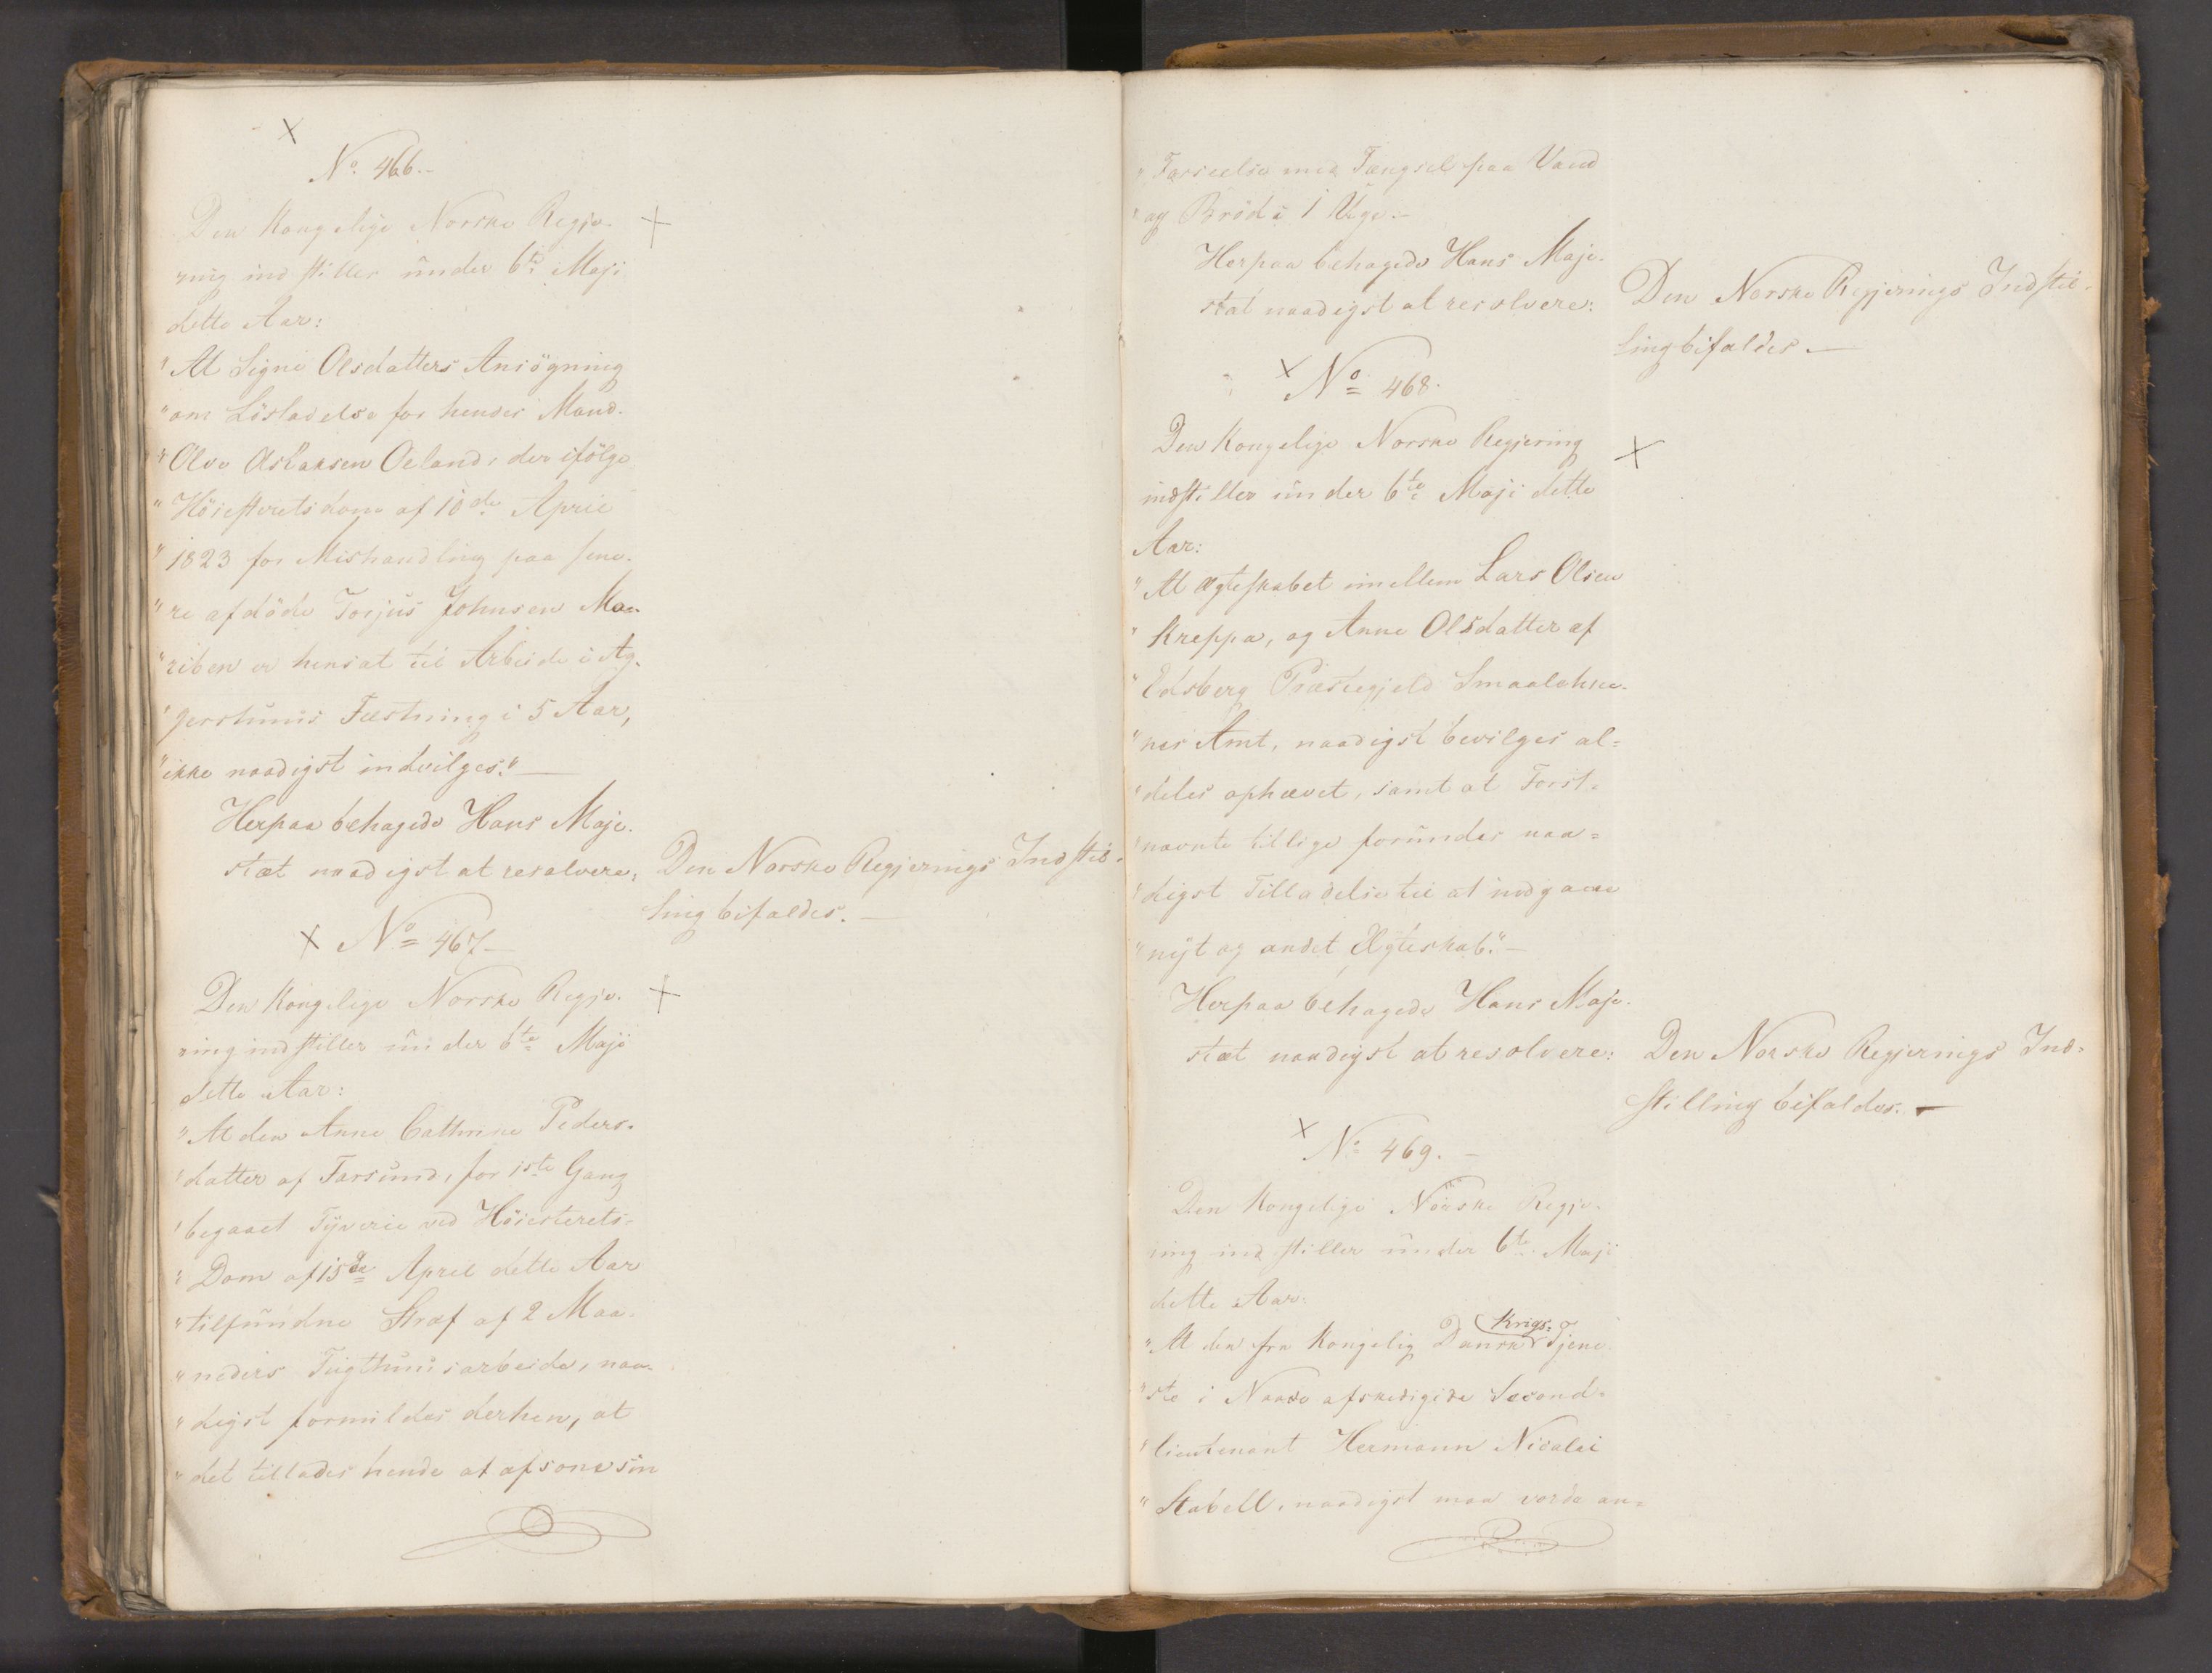 No. 466.-
Den Kongelige Norske Regje-
ring indstiller under 6te Maji
dette Aar:
"At Signe Olsdatters Ansögning
"om Lösladelse for hendes Mand
"Olve Aslaksen Oeland, der ifölge
"Höiesteretsdom af 10de April
"1823 for Mishandling paa sene-
"re afdöde Torjus Johnsen Mo-
"riben er hensat til Arbeide i Ag-
"gershuus Fæstning i 5 Aar,
"ikke naadigst indvilges."-
Herpaa behagede Hans Maje-
stæt naadigst at resolvere:
Den Norske Regjerings Indstil-
ling bifaldes.-
No 467-
Den Kongelige Norske Regje-
ring indstiller under 6te Maji
dette Aar:
"At den Anne Cathrine Peders-
"datter af Farsund, for 1ste Gang
"begaaet Tyverie ved Höiesterets-
"Dom af 15de April dette Aar
"tilfundne Straf af 2 Maa-
"neders Tugthuusarbeide, naa-
"digst formildes derhen, at
"det tillades hende at afsone sin
"Forseelse med Fængsel paa Vand
"og Bröd i 1 Uge.-
Herpaa behagede Hans Maje-
stæt naadigst at resolvere:
Den Norske Regjerings Indstil-
ling bifaldes.-
No 468.
Den Kongelige Norske Regjering
indstiller under 6te Maji dette
Aar:
"At Ægteskabet imellem Lars Olsen
"Kreppa, og Anne Olsdatter af
"Edsberg Præstegjeld Smaalehne-
"nes Amt, naadigst bevilges al=
"deles ophævet, samt at Först-
"nævnte tillige forundes naa=
"digst Tilladelse til at indgaae
"nyt og andet Ægteskab."-
Herpaa behagede Hans Maje-
stæt naadigst at resolvere:
Den Norske Regjerings Ind-
stilling bifaldes.-
No 469.-
Den Kongelige Norske Regje-
ring indstiller under 6te Maji
dette Aar:
"At den fra Kongelig Dansk Krigs= Tjene-
"ste i Naade afskedigede Second-
"lieutenant Hermann Nicolai
"Stabell, naadigst maa vorde an=